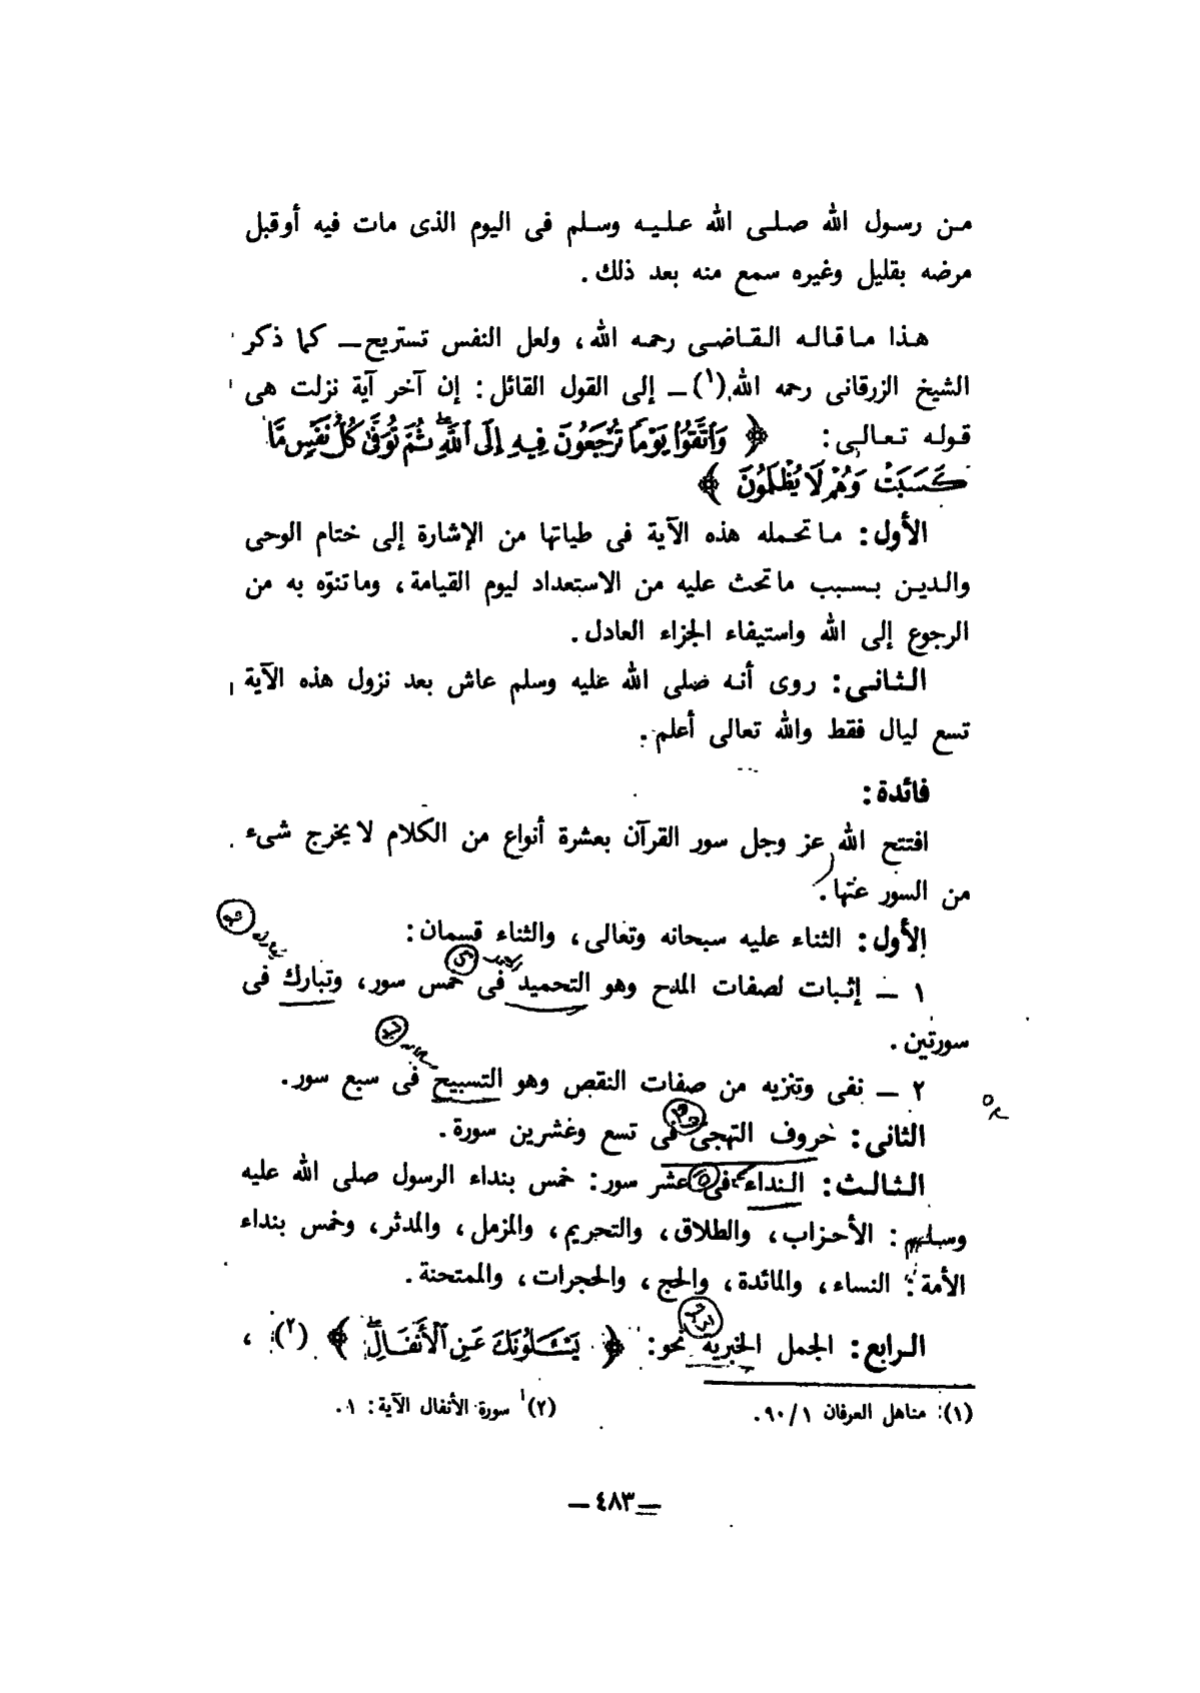 من رسول الله صلى الله عليه وسلم فى اليوم الذى مات فيه أوقبل
مرضه بقليل وغيره سمع منه بعد ذلك .
هذا ماقاله القاضى رحمه الله، ولعل النفس تستريح ــ كما ذكر
الشيخ الزرقانى رحمه الله(١) ــ إلى القول القائل: إن آخر آية نزلت هى
قوله تعالى: ﴿ وَاتَّقُوا يَوْمًا تُرْجَعُونَ فِيهِ إِلَى اللَّهِ ۖ ثُمَّ تُوَفَّىٰ كُلُّ نَفْسٍ مَّا
كَسَبَتْ وَهُمْ لَا يُظْلَمُونَ ﴾
الأول: ماتحمله هذه الآية فى طياتها من الإشارة إلى ختام الوحى
والدين بسبب ماتحث عليه من الاستعداد ليوم القيامة، وماتنوّه به من
الرجوع إلى الله واستيفاء الجزاء العادل.
الثانى: روى أنه صلى الله عليه وسلم عاش بعد نزول هذه الآية
تسع ليال فقط والله تعالى أعلم.
فائدة:
افتتح الله عز وجل سور القرآن بعشرة أنواع من الكلام لايخرج شىء
من السور عنها.
الأول: الثناء عليه سبحانه وتعالى، والثناء قسمان:
١ ــ إثبات لصفات المدح وهو التحميد فى خمس سور، وتبارك فى
سورتين.
٢ ــ نفى وتنزيه من صفات النقص وهو التسبيح فى سبع سور.
الثانى: حروف التهجى فى تسع وعشرين سورة.
الثالث: النداء فى عشر سور: خمس بنداء الرسول صلى الله عليه
وسلم: الأحزاب، والطلاق، والتحريم، والمزمل، والمدثر، وخمس بنداء
الأمة: النساء، والمائدة، والحج، والحجرات، والممتحنة.
الرابع: الجمل الخبرية نحو: ﴿ يَسْـَٔلُونَكَ عَنِ الْأَنفَالِ ۖ ﴾ (٢)،
(١): مناهل العرفان ٩٠/١.
(٢) سورة الأنفال الآية: ١.
ــ ٤٨٣ ــ